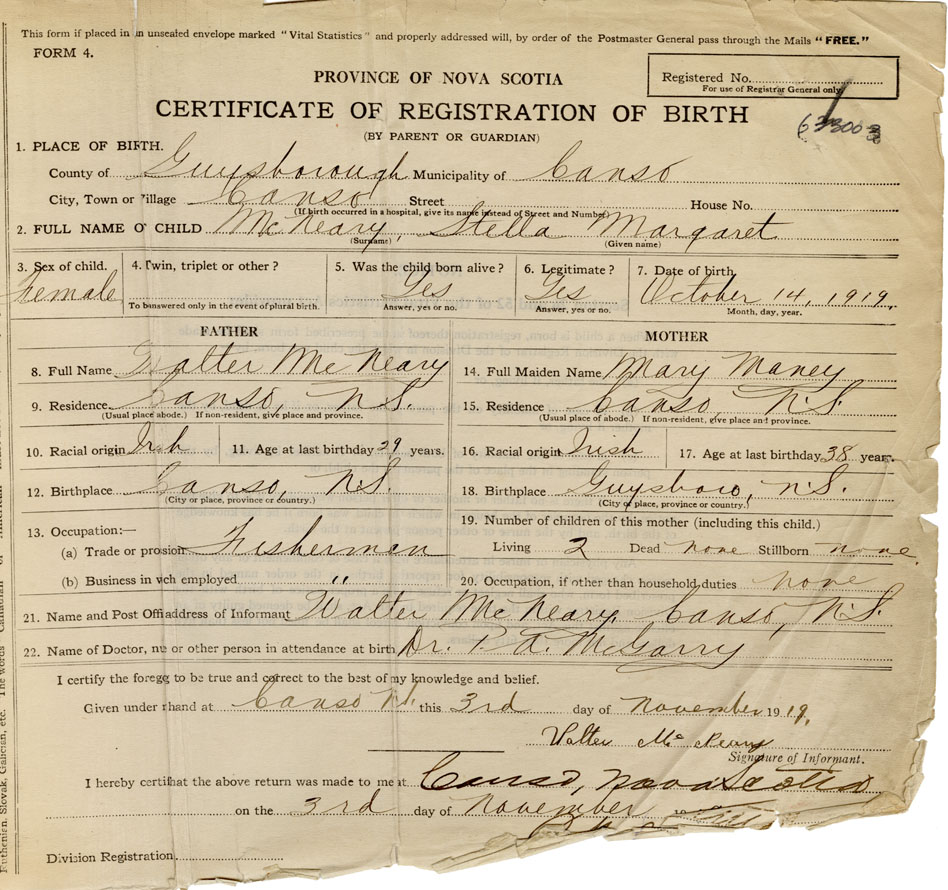 This form if placed in an unsealed envelope marked "Vital Statistics" and properly addressed will, by order of the Postmaster General pass through the Mails "FREE."
FORM 4.
PROVINCE OF NOVA SCOTIA
Registered No.
For use of Registrar General only
CERTIFICATE OF REGISTRATION OF BIRTH
(BY PARENT OR GUARDIAN)
1. PLACE OF BIRTH.
County of Guysborough Municipality of Canso
City, Town or Village Canso Street House No.
(If birth occurred in a hospital, give its name instead of Street and Number)
2. FULL NAME O CHILD McNeary, Stella Margaret
(Surname) (Given name)
3. Sex of child. 4. Twin, triplet or other? 5. Was the child born alive? 6. Legitimate? 7. Date of birth
Female Yes Yes October 14, 1919.
To banswered only in the event of plural birth. Answer, yes or no. Answer, yes or no. Month, day, year.
FATHER MOTHER
8. Full Name Walter McNeary 14. Full Maiden Name Mary Maney
9. Residence Canso, N.S. 15. Residence Canso, N.S.
(Usual place abode.) If non-resident, give place and province. (Usual place of abode.) If non-resident, give place and province.
10. Racial origin Irish 11. Age at last birthday 29 years. 16. Racial origin Irish 17. Age at last birthday 38 years.
12. Birthplace Canso, N.S. 18. Birthplace Guysboro, N.S.
(City or place, province or country.) (City or place, province or country.)
13. Occupation:— 19. Number of children of this mother (including this child.)
(a) Trade or prosion Fishermen Living 2 Dead none Stillborn none
(b) Business in wch employed " 20. Occupation, if other than household duties none
21. Name and Post Offi address of Informant Walter McNeary, Canso, N.S.
22. Name of Doctor, nu or other person in attendance at birth Dr. P. A. McGarry
I certify the foregg to be true and correct to the best of my knowledge and belief.
Given under hand at Canso N.S. this 3rd day of November 1919.
Walter McNeary
Signature of Informant.
I hereby certif that the above return was made to me at Canso, Nova Scotia
on the 3rd day of November 19
Division Registration